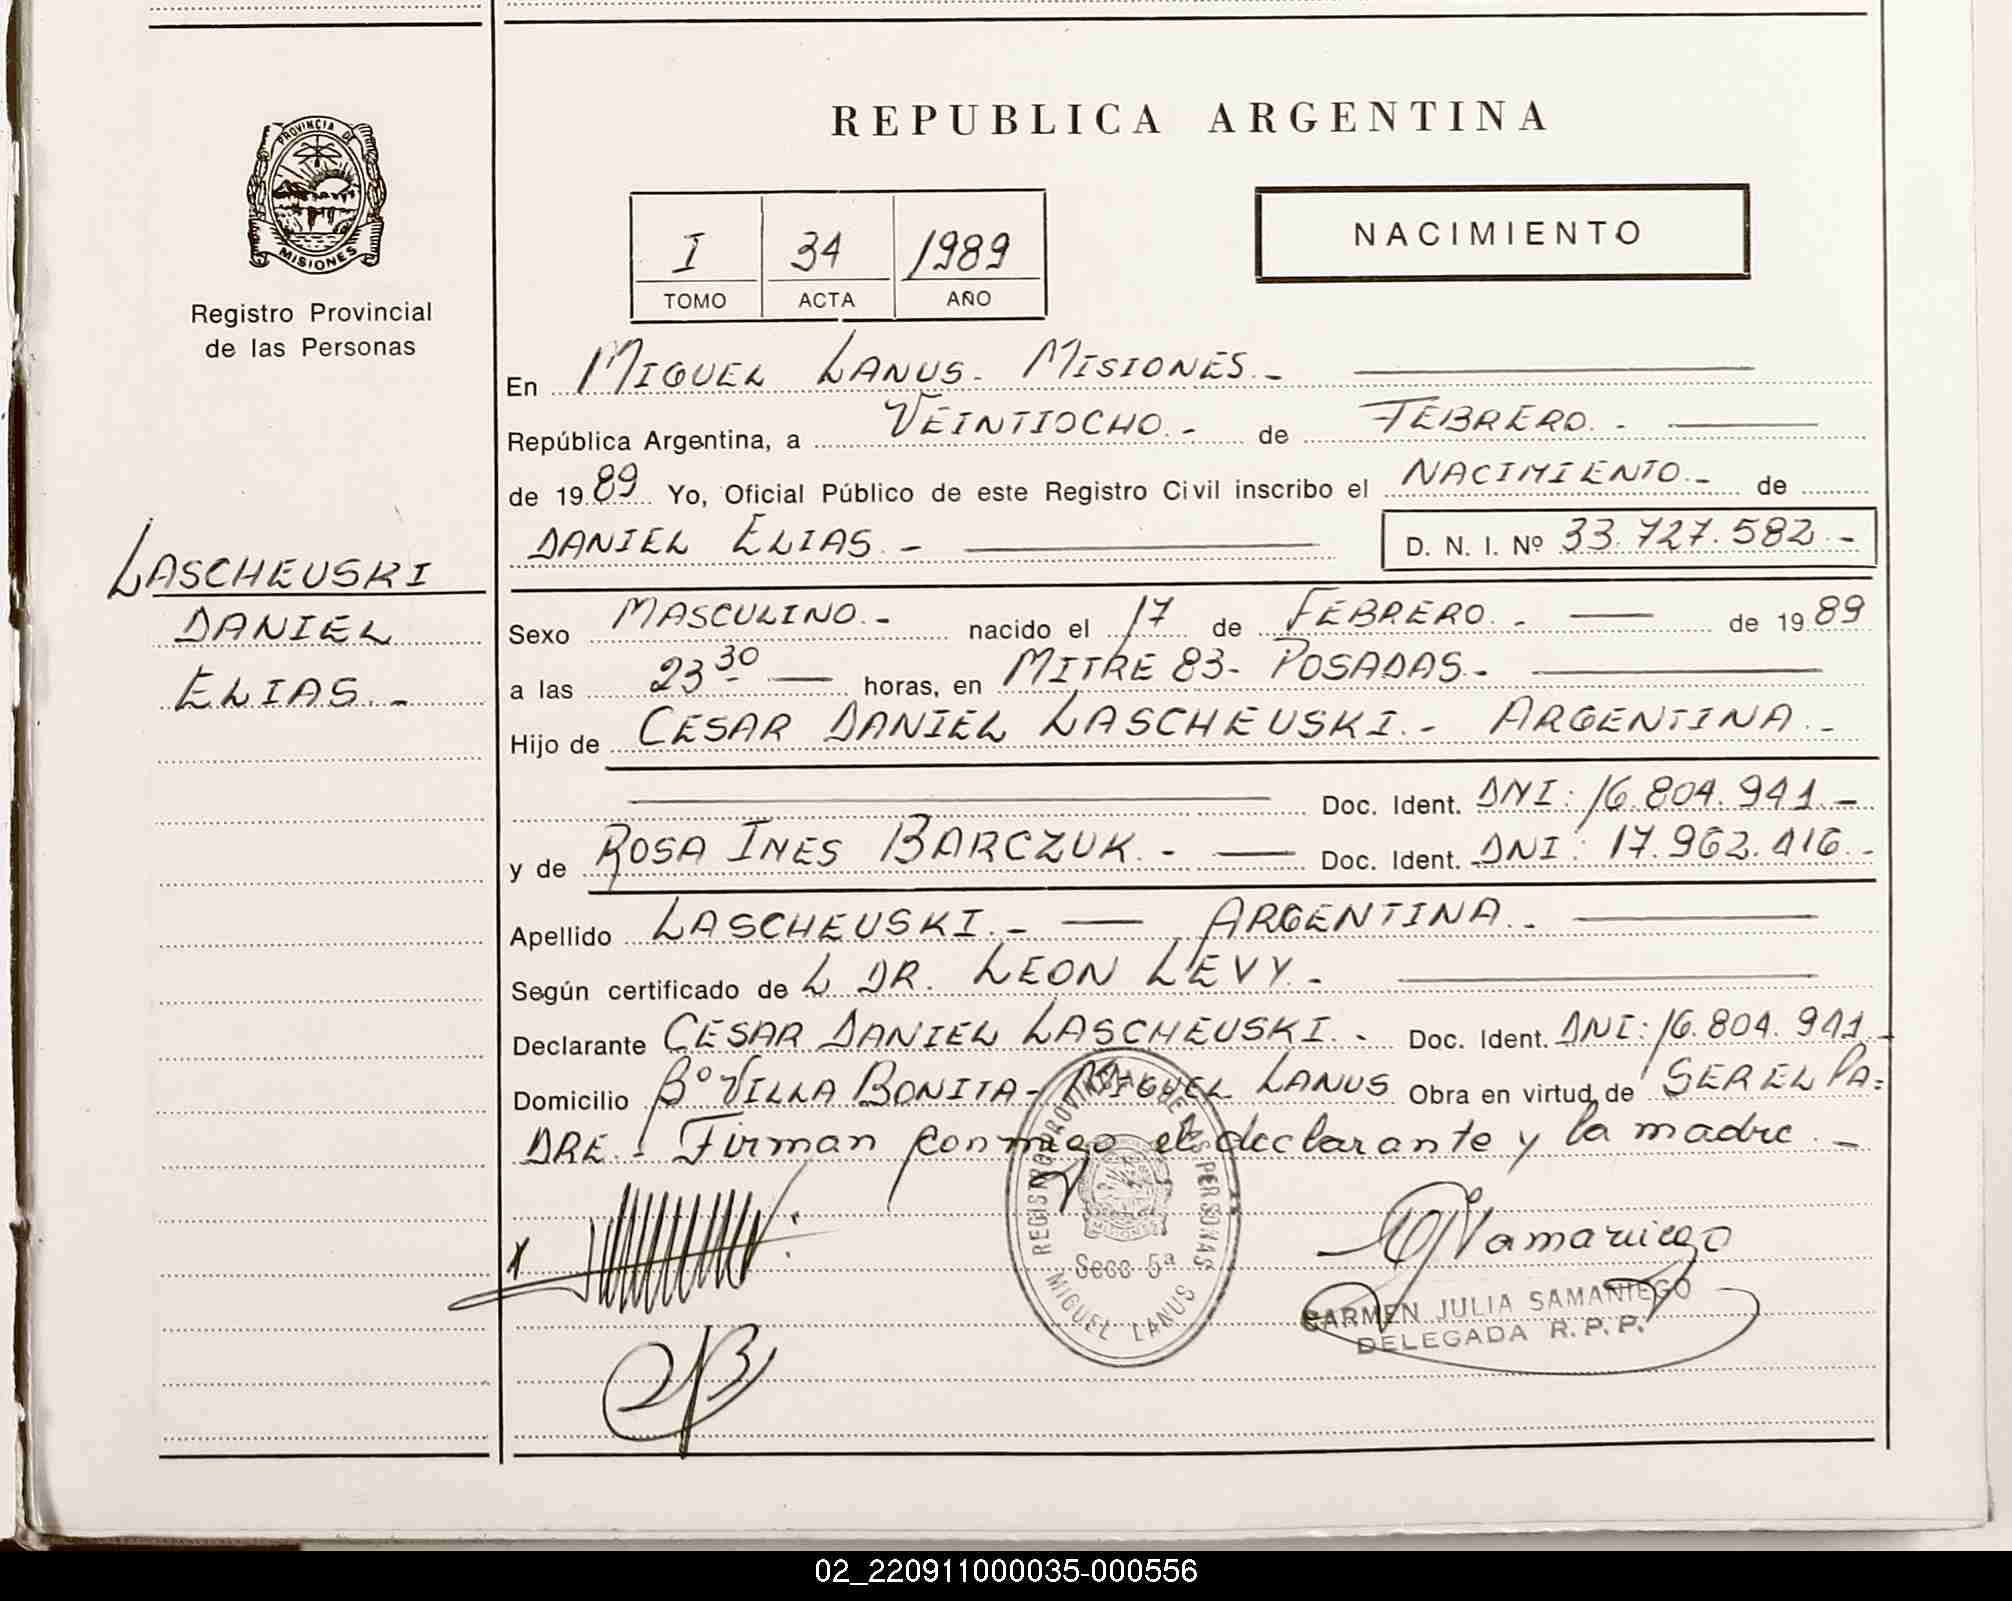 REPUBLICA ARGENTINA
PROVINCIA DE
MISIONES
Registro Provincial
de las Personas
I 34 1989
TOMO ACTA AÑO
NACIMIENTO
En MIGUEL LANUS. MISIONES.-
República Argentina, a VEINTIOCHO.- de FEBRERO.-
de 1989 Yo, Oficial Público de este Registro Civil inscribo el NACIMIENTO.- de
DANIEL ELIAS.- D. N. I. Nº 33.727.582.-
LASCHEUSKI
DANIEL
ELIAS.-
Sexo MASCULINO.- nacido el 17 de FEBRERO.- de 1989
a las 23 30 horas, en MITRE 83- POSADAS.-
Hijo de CESAR DANIEL LASCHEUSKI.- ARGENTINA.-
Doc. Ident. DNI: 16.804.941.-
y de ROSA INES BARCZUK.- Doc. Ident. DNI: 17.962.416.-
Apellido LASCHEUSKI.- ARGENTINA.-
Según certificado de L DR. LEON LEVY.-
Declarante CESAR DANIEL LASCHEUSKI.- Doc. Ident. DNI: 16.804.941.-
Domicilio Bº VILLA BONITA- MIGUEL LANUS Obra en virtud de SER EL PA=
DRE.- Firman conmigo el declarante y la madre.-
REGISTRO PROVINCIAL DE LAS PERSONAS
Secc 5ª
MIGUEL LANUS
CARMEN JULIA SAMANIEGO
DELEGADA R.P.P.
02_220911000035-000556